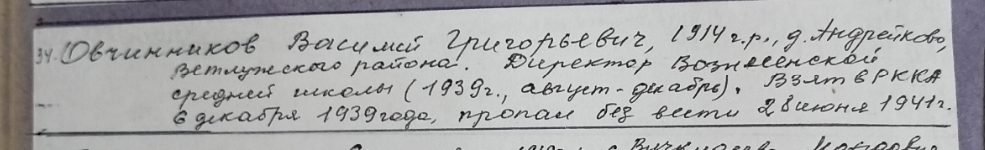 34. Овчинников Василий Григорьевич, 1914 г.р., д. Андрейково,
Ветлужского района. Директор Вознесенской
средней школы (1939г., август - декабрь). Взят в РККА
6 декабря 1939 года, пропал без вести 28 июня 1941г.